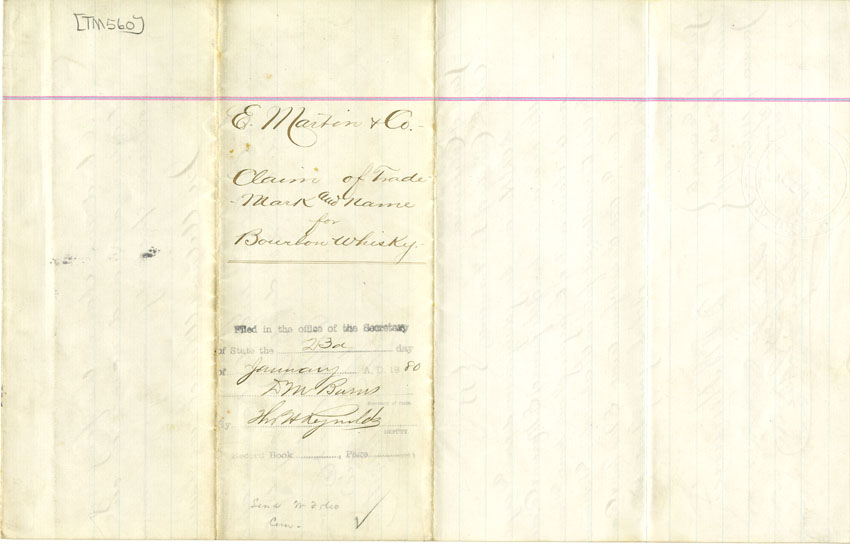 [TM560]
E. Martin & Co.-
Claim of Trade
-Mark and Name
for
Bourbon Whisky.-
Filed in the office of the Secretary
of State the 23d day
of January A. D. 1880
D M Burns
Secretary of State
By Thos H Reynolds
Deputy
Record Book , Page
Send